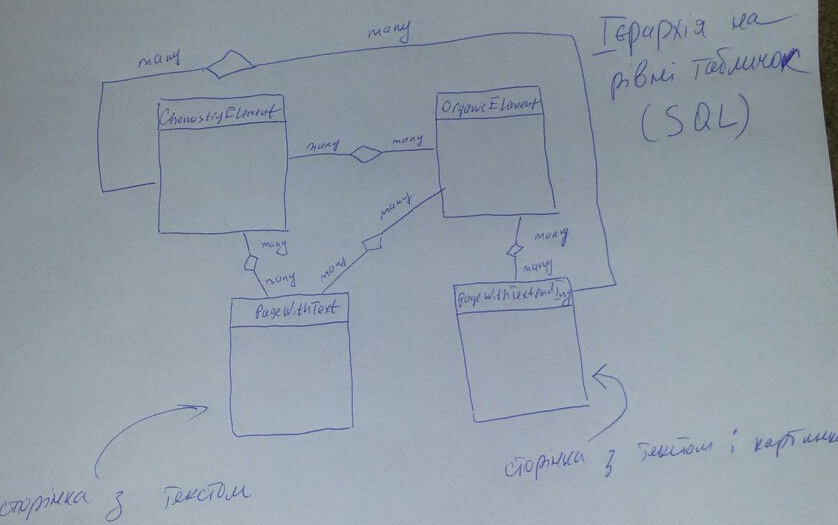 many
many
Ієрархія на
рівні табличок
(SQL)
ChemistryElement
OrganicElement
many
many
many
many
many
many
many
many
PageWithText
PageWithTextAndImg
сторінка з текстом
сторінка з текстом і